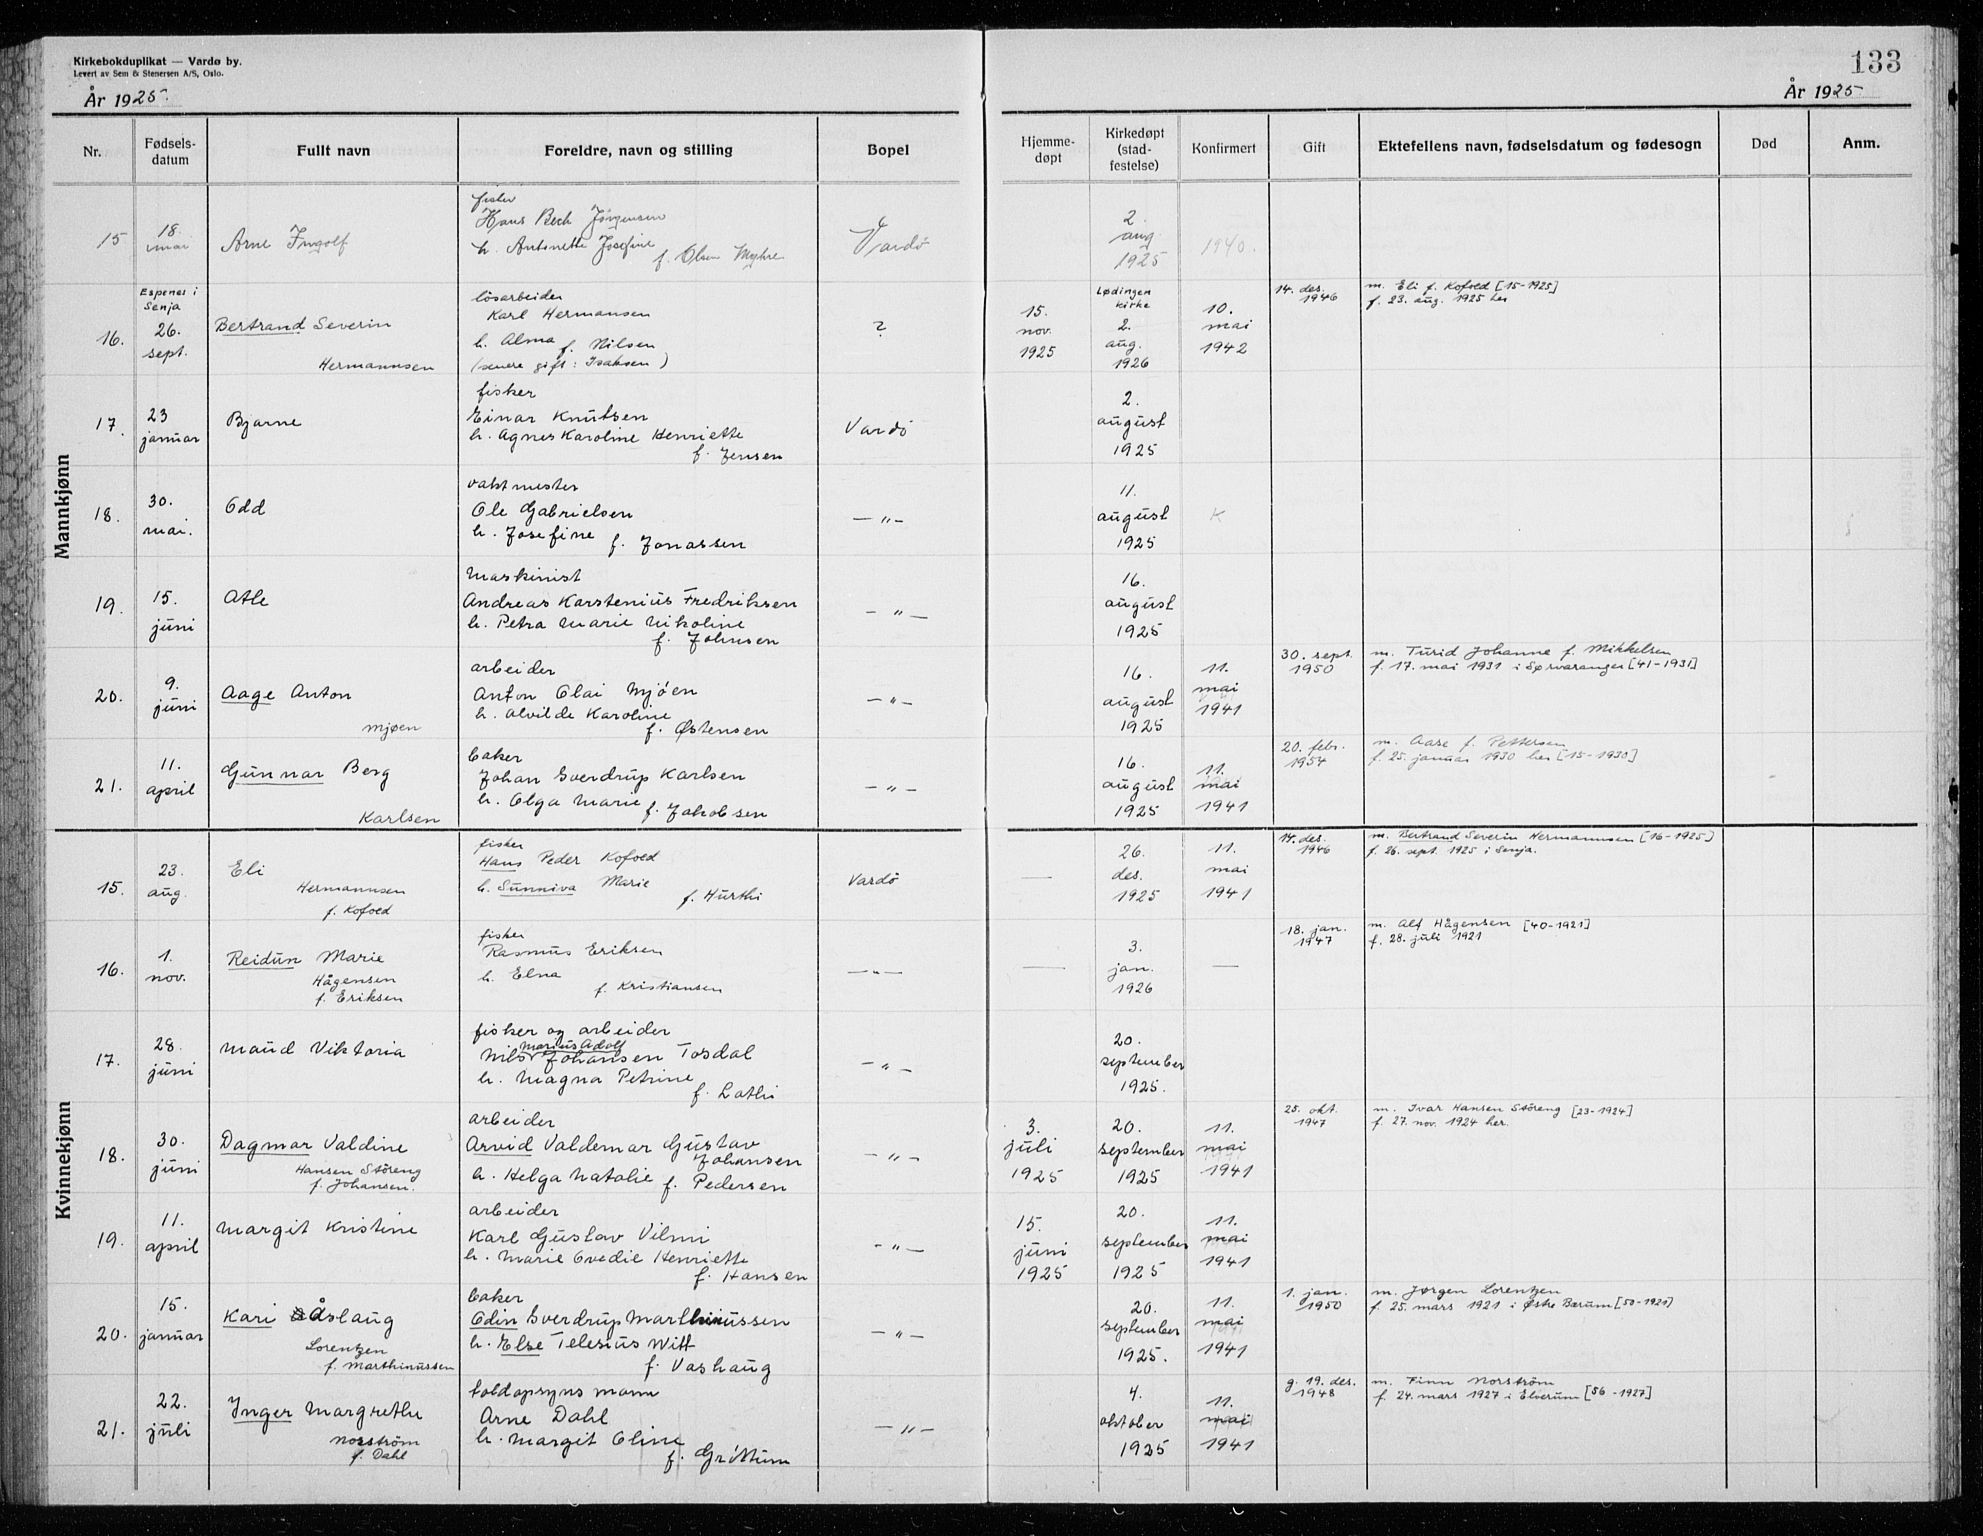 Kirkebokduplikat — Vardø by.
Levert av Sem & Stenersen A/S, Oslo.
År 1925.
133
År 1925
Nr. Fødsels-datum Fullt navn Foreldre, navn og stilling Bopel Hjemme-døpt Kirkedøpt (stad-festelse) Konfirmert Gift Ektefellens navn, fødselsdatum og fødesogn Død Anm.
Mannkjønn
fisker
15 18. mai Arne Ingolf Hans Bech Jørgensen Vardö 2 aug 1925 1940.
h. Antonette Josefine
f. Olsen Myhre
Espenes i Senja
løsarbeider
16. 26. sept. Bertrand Severin Karl Hermansen ? 15. nov. 1925 Lødingen kirke 2. aug. 1926 10. mai 1942 14. des. 1946 m. Eli f. Kofoed [15-1925]
f. 23. aug. 1925 her
Hermannsen h. Alma f. Nilsen
(senere gift: Isaksen)
fisker
17. 23 januar Bjarne Einar Knutsen Vardö 2. august 1925
h. Agnes Karoline Henriette
f. Jensen
vaktmester
18. 30. mai. Odd Ole Gabrielsen — " — 11. august 1925 K
h. Josefine f. Jonassen
maskinist
19. 15. juni Atle Andreas Karstenius Fredriksen — " — 16. august 1925
h. Petra Marie Nikoline
f. Johnsen
arbeider
20. 9. juni Aage Anton Anton Olai Mjöen — " — 16. august 1925 11. mai 1941 30. sept. 1950 m. Turid Johanne f. Mikkelsen
f. 17. mai 1931 i Sørvaranger [41-1931]
Mjøen h. Alvilde Karoline
f. Østensen
baker
21. 11. april Gunnar Berg Johan Sverdrup Karlsen — " — 16. august 1925 11. mai 1941 20. febr. 1954 m. Aase f. Pettersen
f. 25. januar 1930 her [15-1930]
Karlsen h. Olga Marie f. Jakobsen
Kvinnekjønn
fisker
15. 23. aug. Eli Hans Peder Kofoed Vardö — 26. des. 1925 11. mai 1941 14. des. 1946 m. Bertrand Severin Hermannsen [16-1925]
f. 26. sept. 1925 i Senja.
Hermannsen h. Sunniva Marie
f. Kofoed f. Hurthi
fisker
16. 1. nov. Reidun Marie Rasmus Eriksen — " — — 3. jan. 1926 — 18. jan. 1947 m. Alf Hågensen [40-1921]
f. 28. juli 1921
Hågensen h. Elna
f. Eriksen f. Kristiansen
fisker og arbeider
17. 28. juni Maud Viktoria Nils Marius Adolf Johansen Tosdal — " — 20. september 1925.
h. Magna Petrine
f. Lathi
arbeider
18. 30. juni Dagmar Valdine Arvid Valdemar Gustav Johansen — " — 3. juli 1925 20. september 1925 11. mai 1941 25. okt. 1947 m. Ivar Hansen Störeng [23-1924]
f. 27. nov. 1924 her.
Hansen Störeng h. Helga Natalie f. Pedersen
f. Johansen.
arbeider
19. 11. april Margit Kristine Karl Gustav Vilmi — " — 15. juni 1925 20. september 1925 11. mai 1941
h. Marie Ovedie Henriette
f. Hansen
baker
20. 15. januar Kari Åslaug Odin Sverdrup Marthinussen — " — 20. september 1925. 11. mai 1941 1. jan. 1950 m. Jørgen Lorentzen
f. 25. mars 1921 i Østre Bærum [50-1921]
Lorentzen h. Else Telesius Witt
f. Marthinussen f. Vashaug
toldopsynsmann
21. 22. juli Inger Margrethe Arne Dahl — " — 4. oktober 1925 11. mai 1941 g. 19. des. 1948 m. Finn Norström
f. 24. mars 1927 i Elverum [56-1927]
Norström h. Margit Oline
f. Dahl f. Gröttum